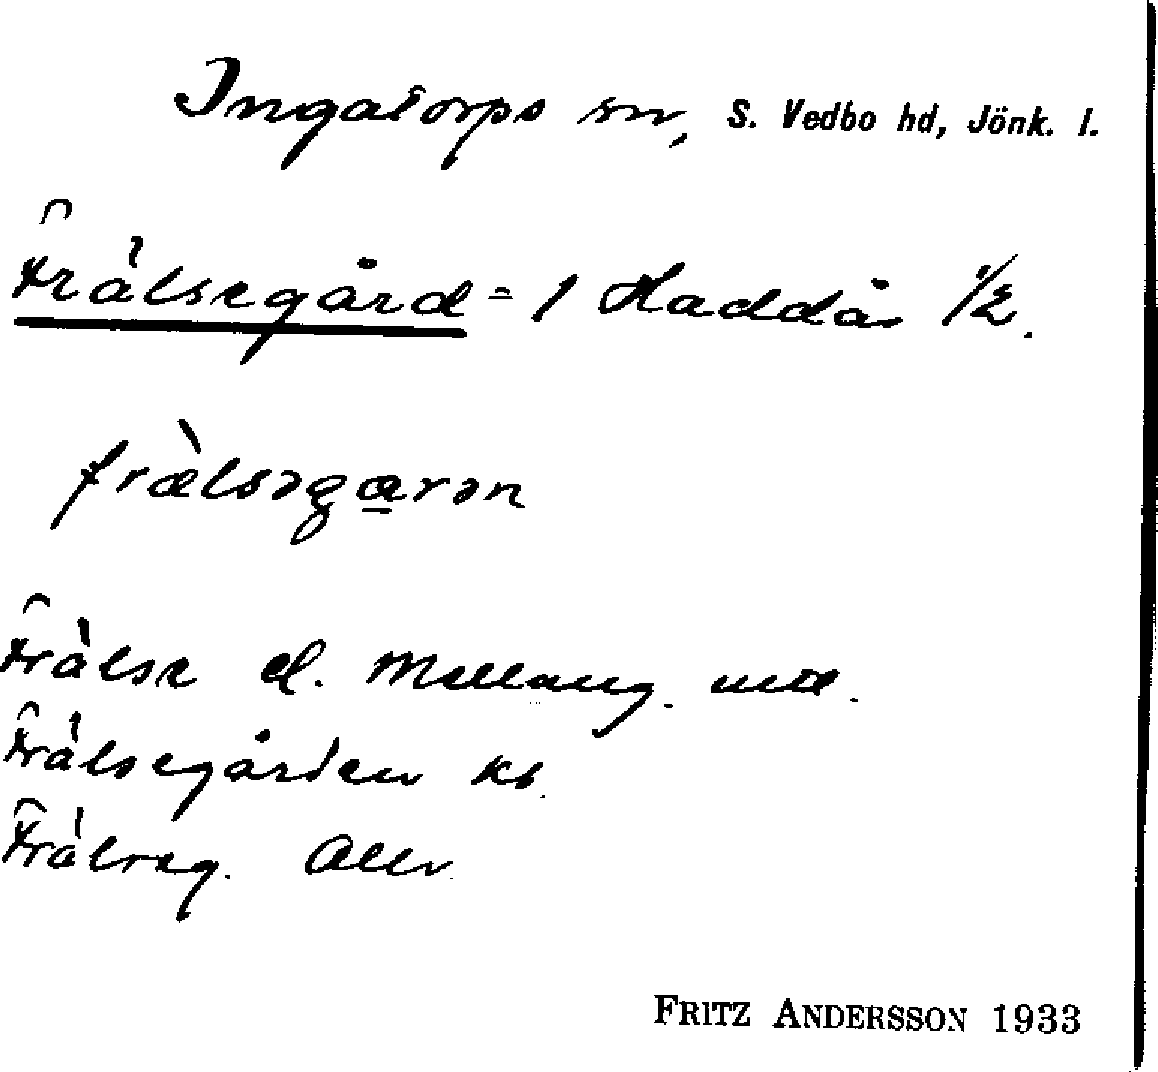 Ingatorps sn, S. Vedbo hd, Jönk. l.
Frälsegård = 1 Haddås 1/2.
frælsəgarən
Frälse el. Mellang. utd.
Frälsegården ks.
Frälseg. Allm.
FRITZ ANDERSSON 1933